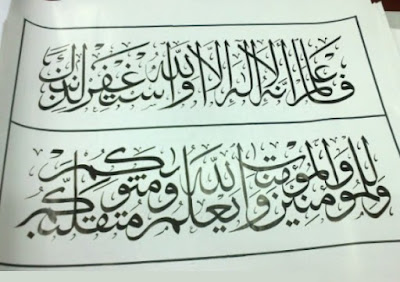 فاعلم انه لا اله الا الله واستغفر لذنبك
وللمؤمنين والمؤمنات والله يعلم متقلبكم ومثويكم